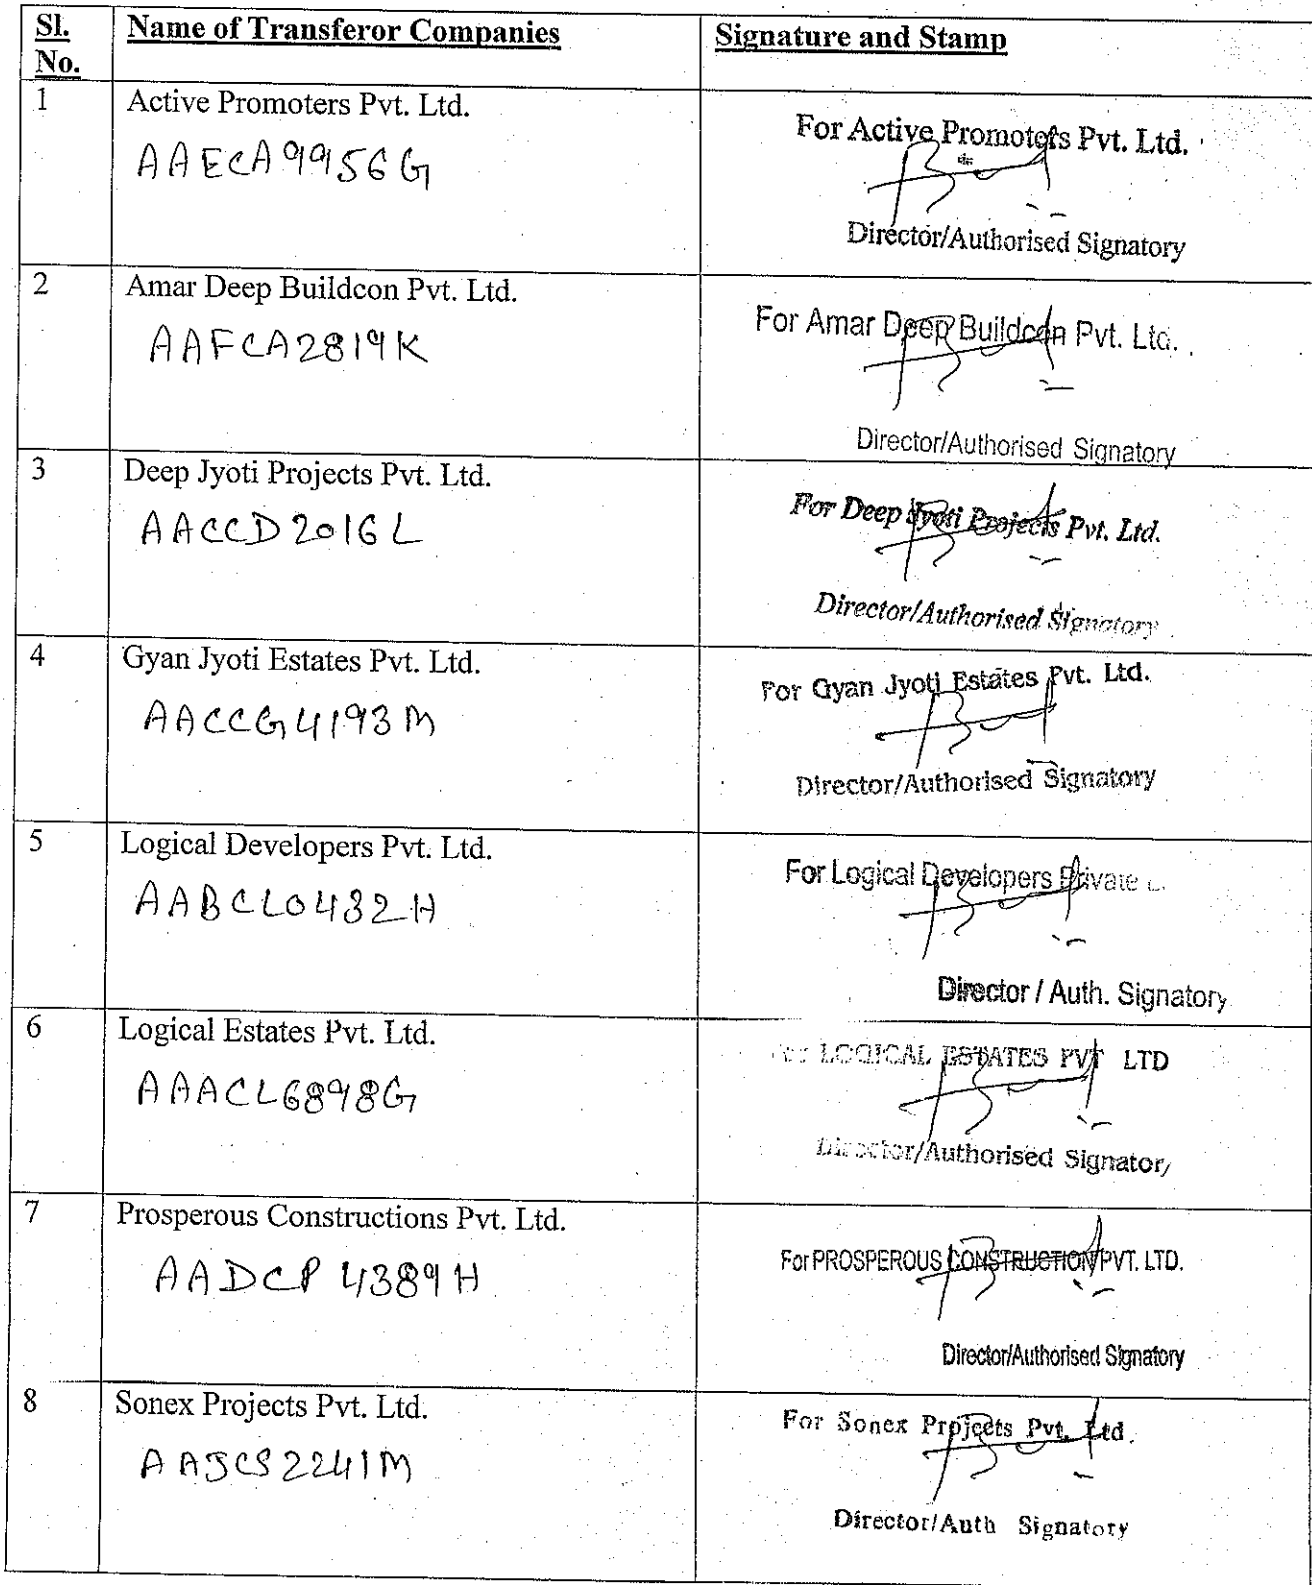 Sl. No.
Name of Transferor Companies
Signature and Stamp
1
Active Promoters Pvt. Ltd.
AAECA9956G
For Active Promoters Pvt. Ltd.
Director/Authorised Signatory
2
Amar Deep Buildcon Pvt. Ltd.
AAFCA2819K
For Amar Deep Buildcon Pvt. Ltd.
Director/Authorised Signatory
3
Deep Jyoti Projects Pvt. Ltd.
AACCD2016L
For Deep Jyoti Projects Pvt. Ltd.
Director/Authorised Signatory
4
Gyan Jyoti Estates Pvt. Ltd.
AACCG4193M
For Gyan Jyoti Estates Pvt. Ltd.
Director/Authorised Signatory
5
Logical Developers Pvt. Ltd.
AABCL0432H
For Logical Developers Private L
Director / Auth. Signatory
6
Logical Estates Pvt. Ltd.
AAACL6898G
For LOGICAL ESTATES PVT LTD
Director/Authorised Signatory
7
Prosperous Constructions Pvt. Ltd.
AADCP4389H
For PROSPEROUS CONSTRUCTION PVT. LTD.
Director/Authorised Signatory
8
Sonex Projects Pvt. Ltd.
AAJCS2241M
For Sonex Projects Pvt. Ltd.
Director/Auth Signatory